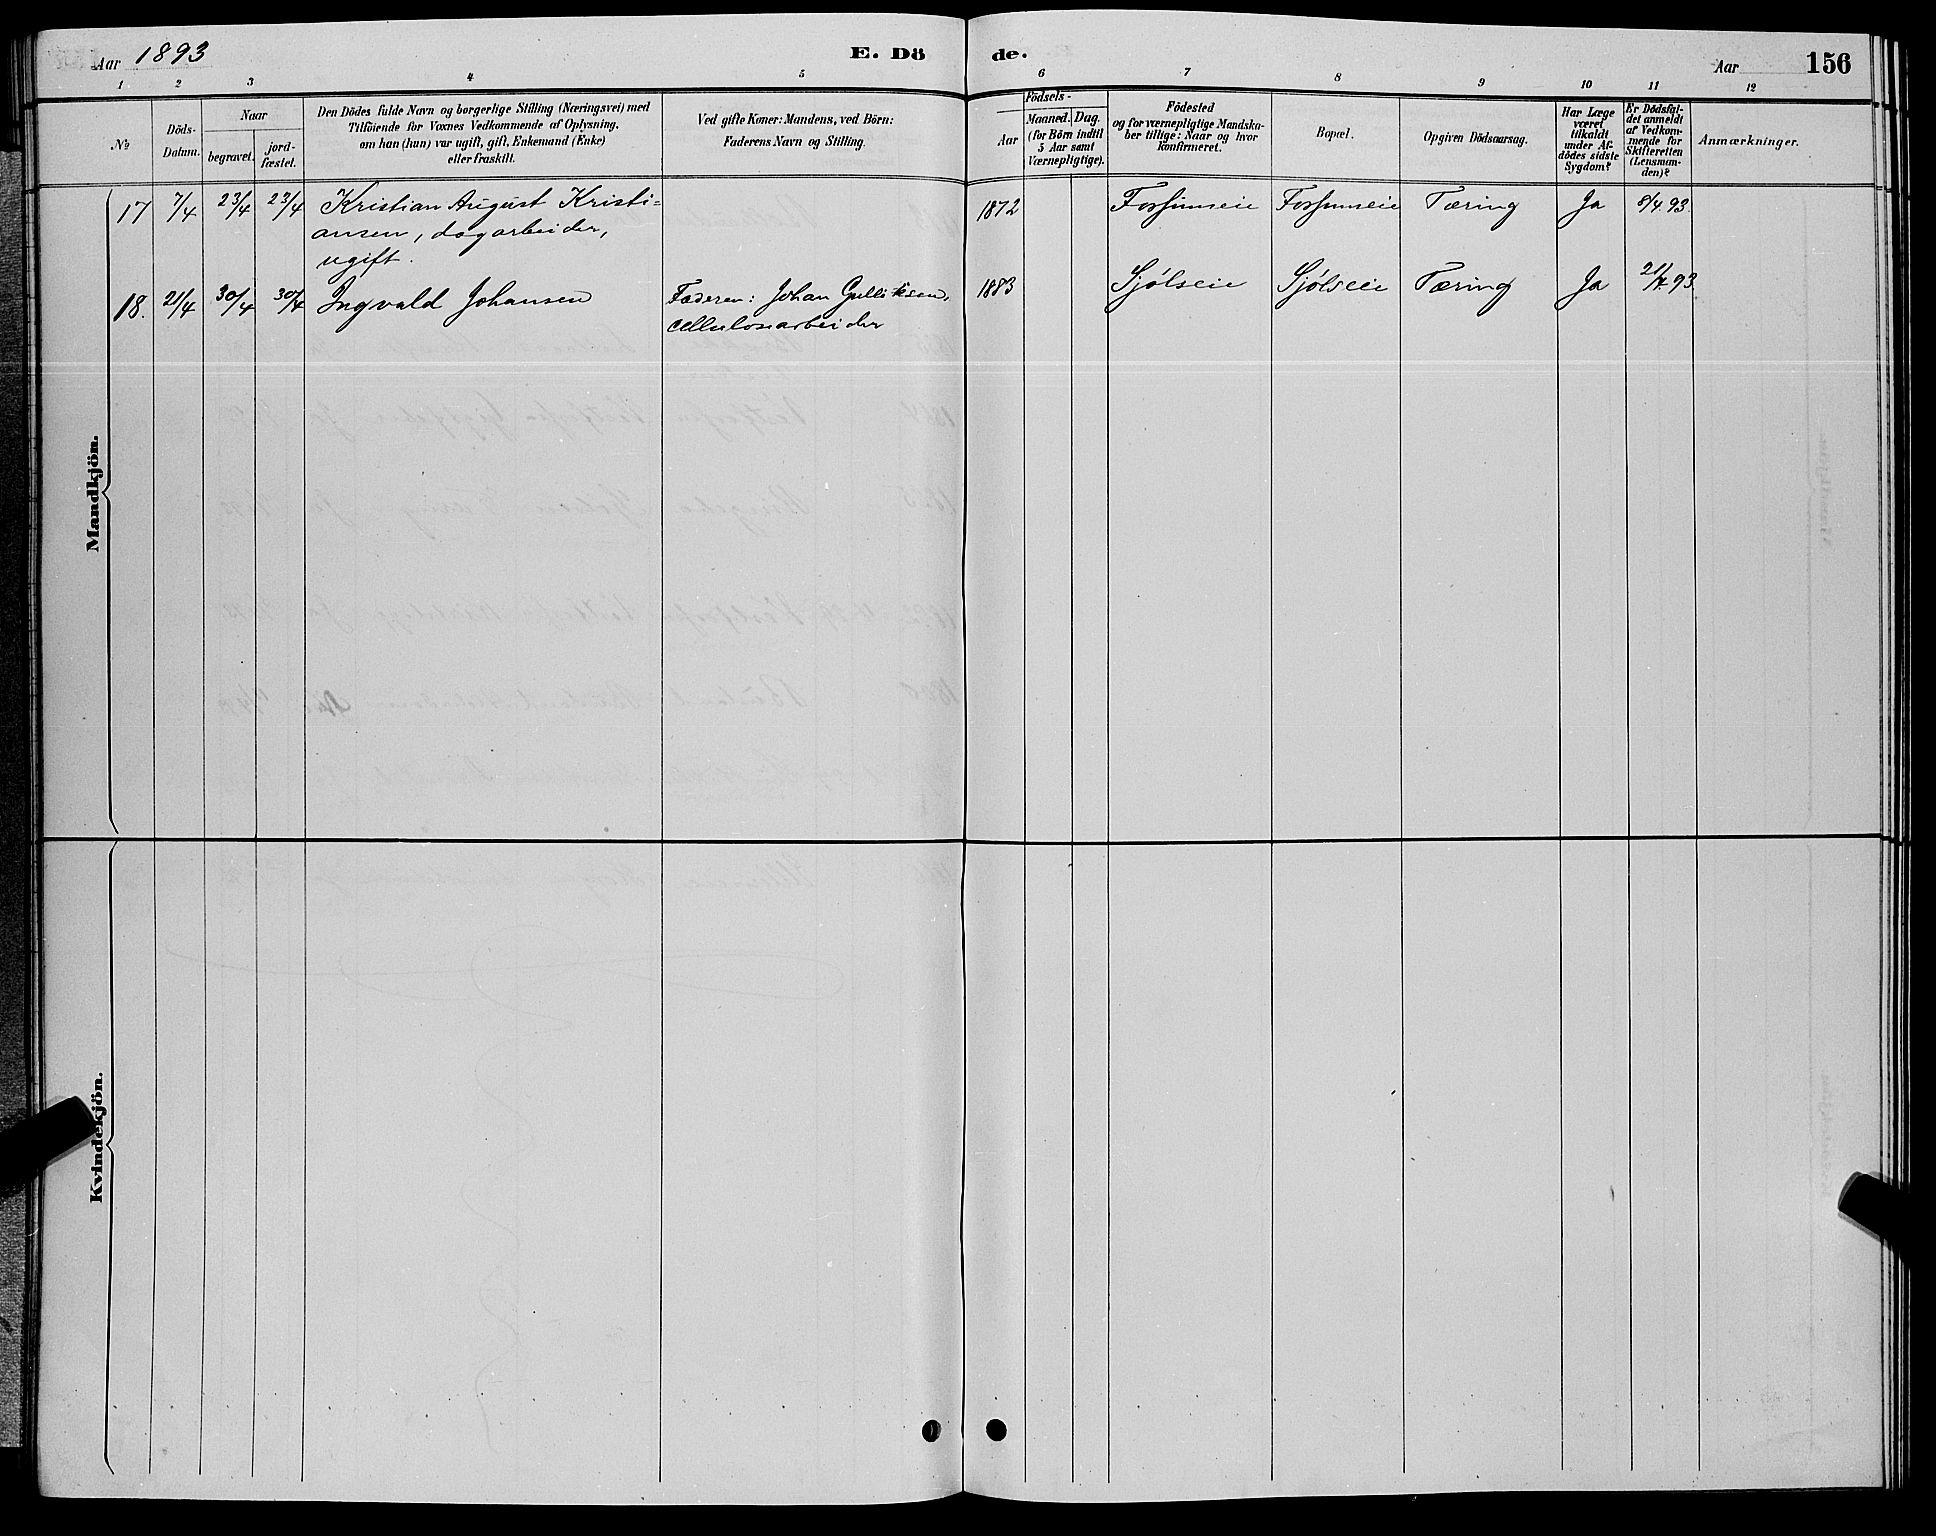 Aar 1893
E. Dö
de.
Aar
156
1 2 3 4 5 6 7 8 9 10 11 12
№
Döds-
Datum.
Naar
begravet.
jord-
fæstet.
Den Dödes fulde Navn og borgerlige Stilling (Næringsvei) med
Tilföiende for Voxnes Vedkommende af Oplysning,
om han (hun) var ugift, gift, Enkemand (Enke)
eller fraskilt.
Ved gifte Koner: Mandens, ved Börn:
Faderens Navn og Stilling.
Födsels-
Aar
Maaned. Dag.
(for Börn indtil
5 Aar samt
Værnepligtige).
Födested
og for værnepligtige Mandska-
ber tillige: Naar og hvor
konfirmeret.
Bopæl.
Opgiven Dödsaarsag.
Har Læge
været
tilkaldt
under Af-
dödes sidste
Sygdom?
Er Dödsfal-
det anmeldt
af Vedkom-
mende for
Skifteretten
(Lensman-
den)?
Anmærkninger.
Mandkjön.
17 7/4 23/4 23/4 Kristian August Kristi= 1872 Forsumseie Forsumseie Tæring Ja 8/4.93.
ansen, dagarbeider,
ugift.
18. 21/4 30/4 30/4 Ingvald Johansen Faderen: Johan Gulliksen, 1883 Sjølseie Sjølseie Tæring Ja 21/4.93
cellulosearbeider
Kvindekjön.